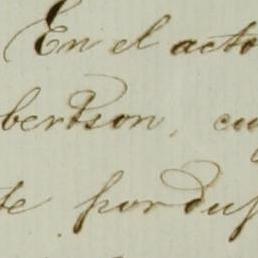 En el acto
bertson, cuy
te por dup